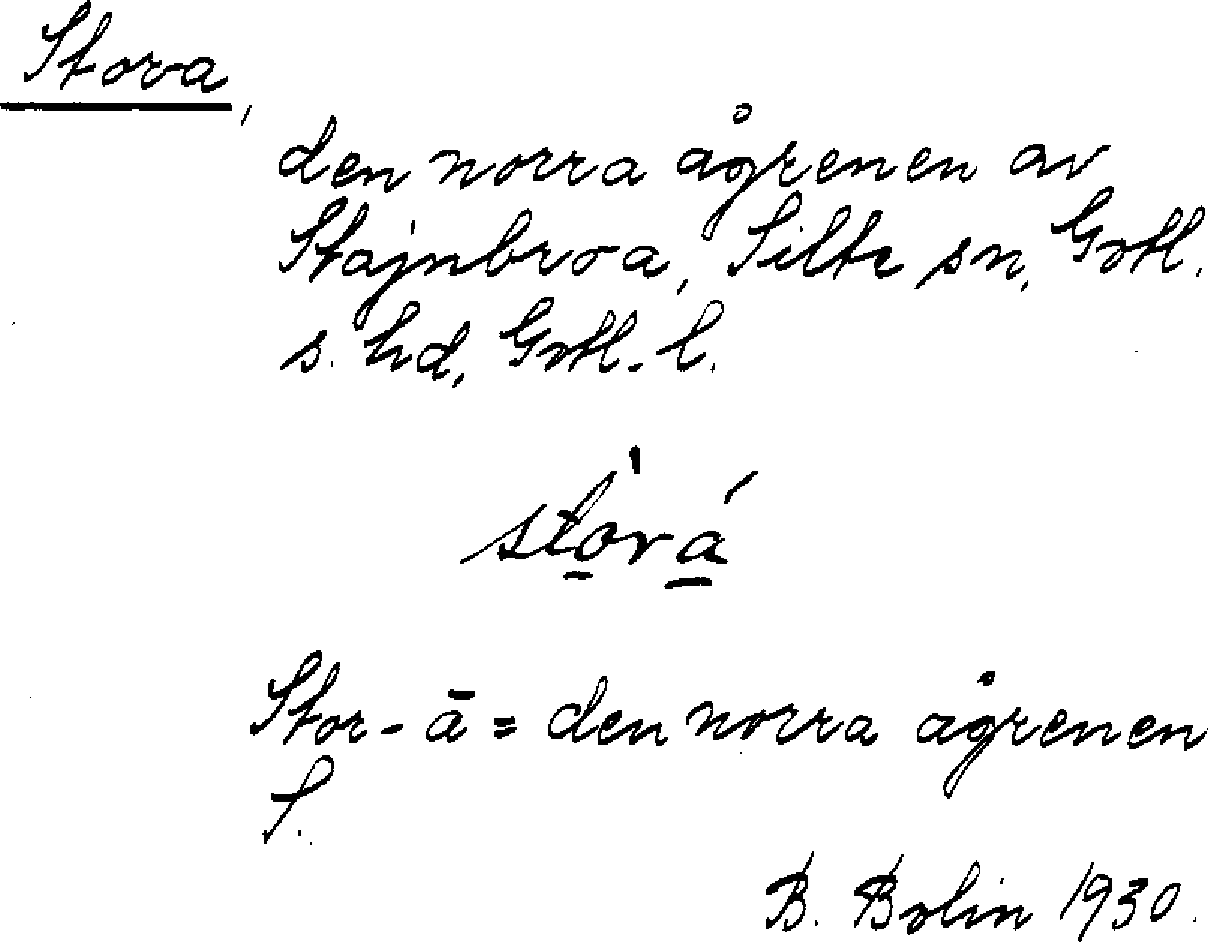 Stora,
den norra ågrenen av
Stajnbroa, Silte sn, Gotl.
s. hd, Gotl. l.
stòrá
Stor-ā = den norra ågrenen
S.
B. Bolin 1930.